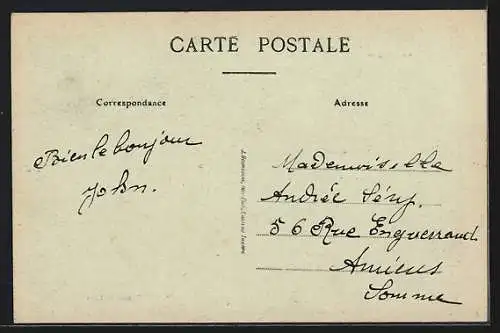 CARTE POSTALE
Correspondance
Adresse
Bien le bonjour
John.
Mademoiselle
Andrée Sény.
56 Rue Enguerrand
Amiens
Somme